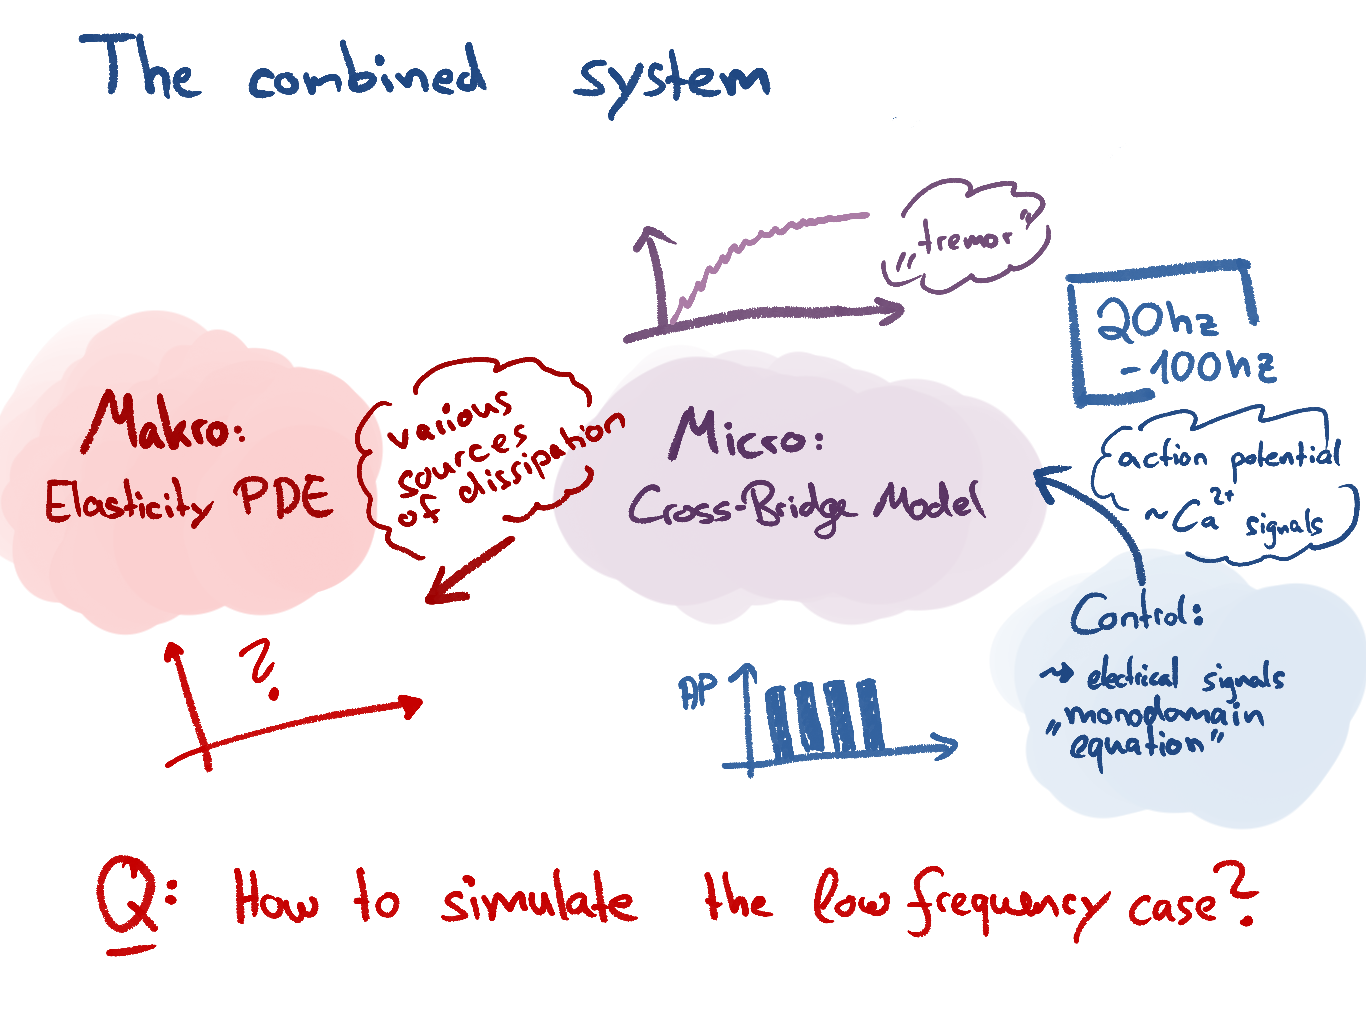 The combined system
„tremor"
20hz
-100hz
Makro:
Elasticity PDE
various
sources
of dissipation
Micro:
Cross-Bridge Model
action potential
~Ca²⁺ signals
Control:
⇝ electrical signals
„monodomain
equation"
?
AP
Q: How to simulate the low frequency case?